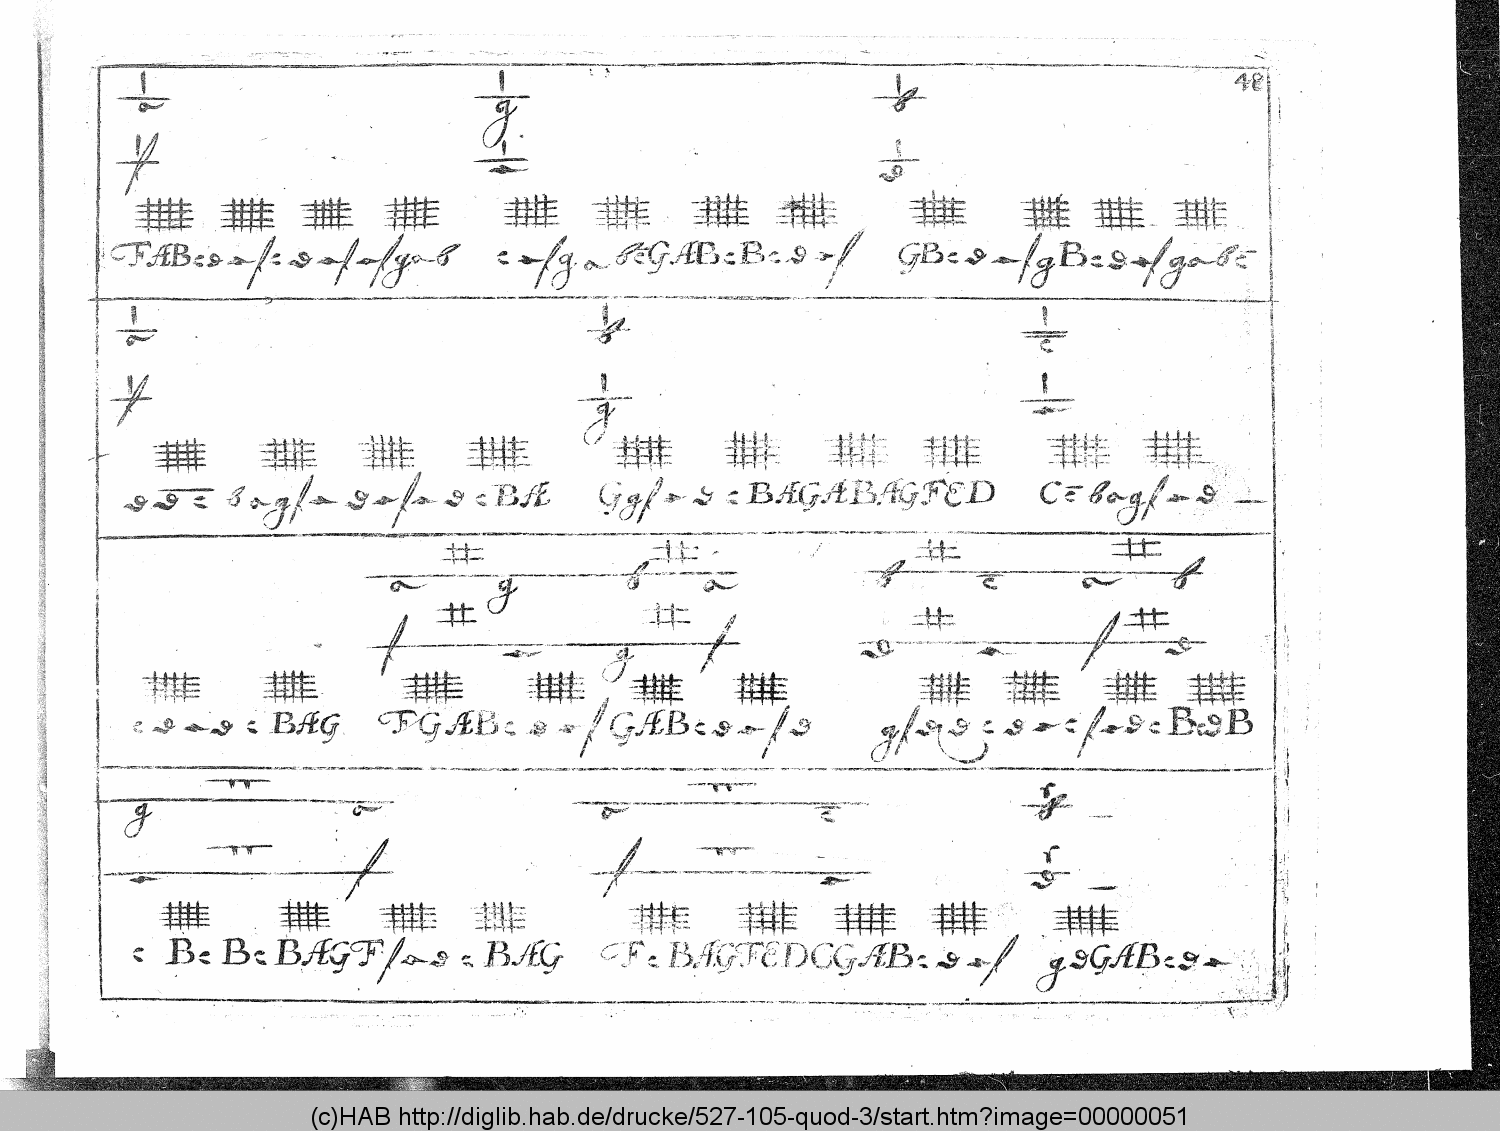 48
a g b
f e d
FABcdefcdefefgab cefgabc̄GABcBcdef GBcdefgBcdefgabc̄
a b c̄
f g e
dd̄c̄bagfedefedcBA GgfedcBAGABAGFED Cc̄bagfed
a g b a b c̄ a b
f e g f d e f d
cdedcBAG FGABcdefGABcdefd gfddcdecfedcBcdB
g a a c̄ g
e f f e d
cBcBcBAGFfedcBAG FcBAGFEDCGABcdef gdGABcde
(c)HAB http://diglib.hab.de/drucke/527-105-quod-3/start.htm?image=00000051